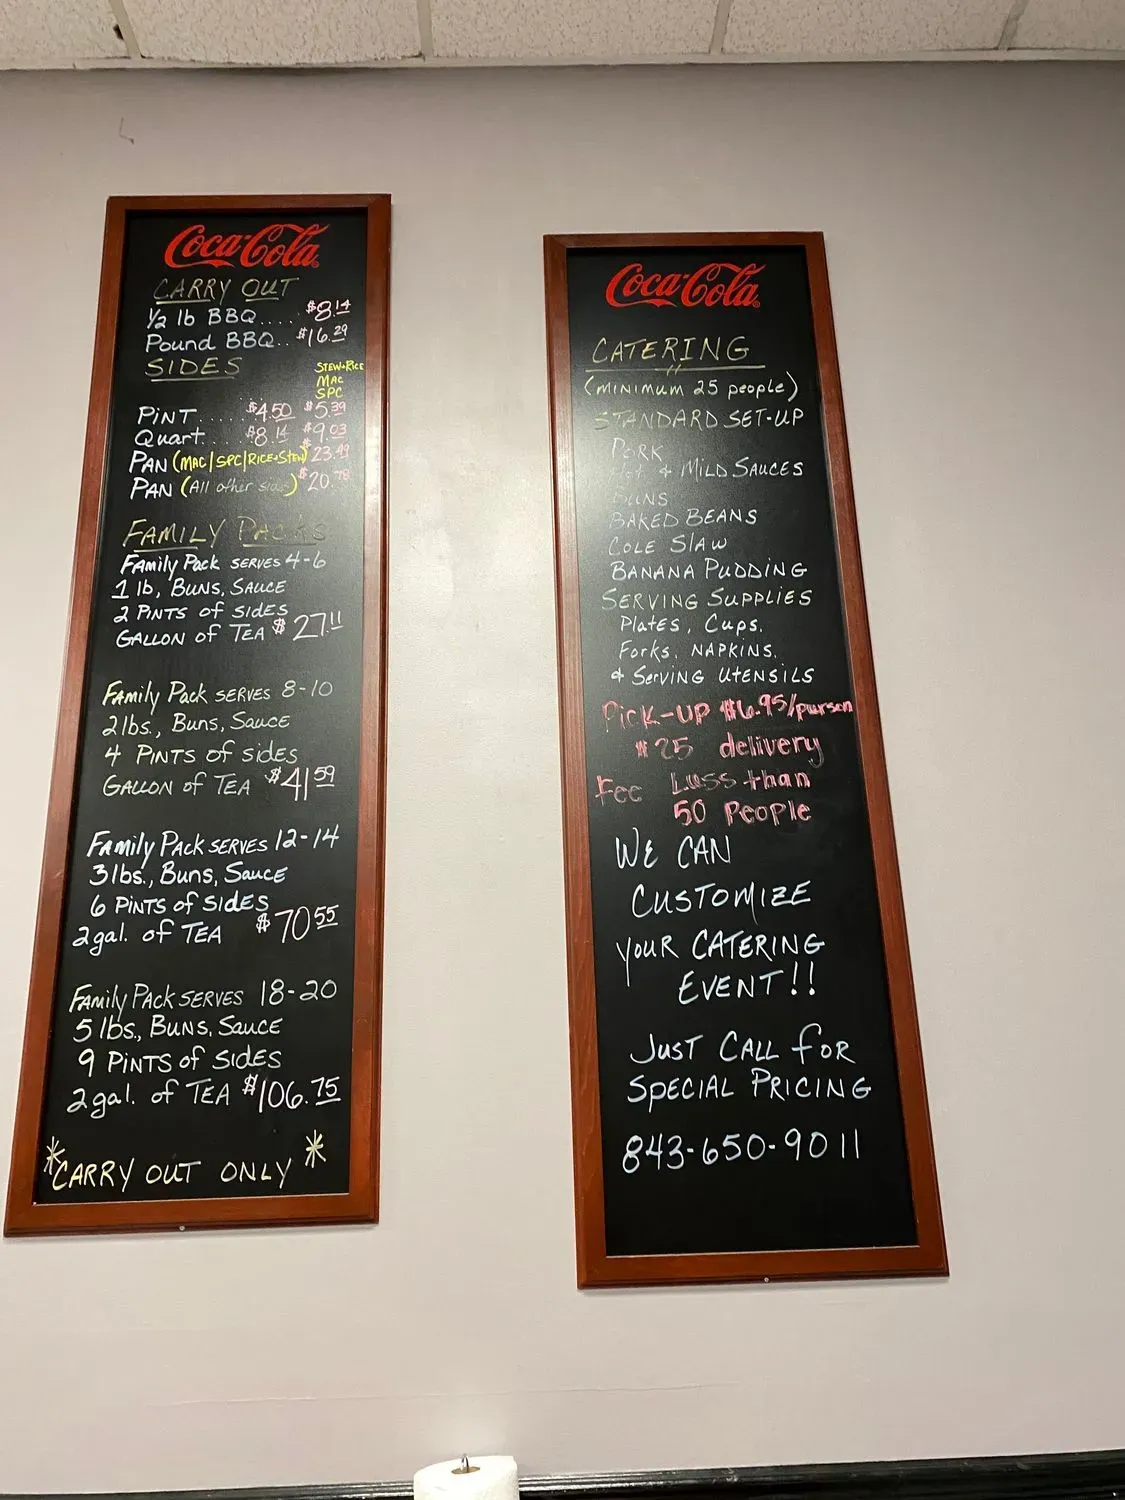 Coca-Cola
CARRY OUT
1/2 lb BBQ.... $8.14
Pound BBQ.. $16.29
SIDES
STEW+RICE
MAC
SPC
PINT.... $4.50 $5.39
Quart.... $8.14 $9.03
PAN (MAC/SPC/RICE+STEW) $23.49
PAN (All other sides) $20.78
FAMILY PACKS
Family Pack SERVES 4-6
1 lb, BUNS, SAUCE
2 PINTS of sides
GALLON of TEA $27.11
Family Pack SERVES 8-10
2 lbs., Buns, Sauce
4 PINTS of sides
GALLON of TEA $41.59
Family Pack SERVES 12-14
3 lbs., Buns, Sauce
6 PINTS of sides
2 gal. of TEA $70.55
Family Pack SERVES 18-20
5 lbs., BUNS, Sauce
9 PINTS of sides
2 gal. of TEA $106.75
*CARRY OUT ONLY*
Coca-Cola
CATERING
(MINIMUM 25 people)
STANDARD SET-UP
PORK
Hot & MILD SAUCES
BUNS
BAKED BEANS
COLE SLAW
BANANA PUDDING
SERVING SUPPLIES
Plates, Cups,
Forks, NAPKINS,
& SERVING UTENSILS
Pick-up $6.95/person
$25 delivery
Fee Less than
50 People
WE CAN
CUSTOMIZE
your CATERING
EVENT!!
JUST CALL for
SPECIAL PRICING
843-650-9011